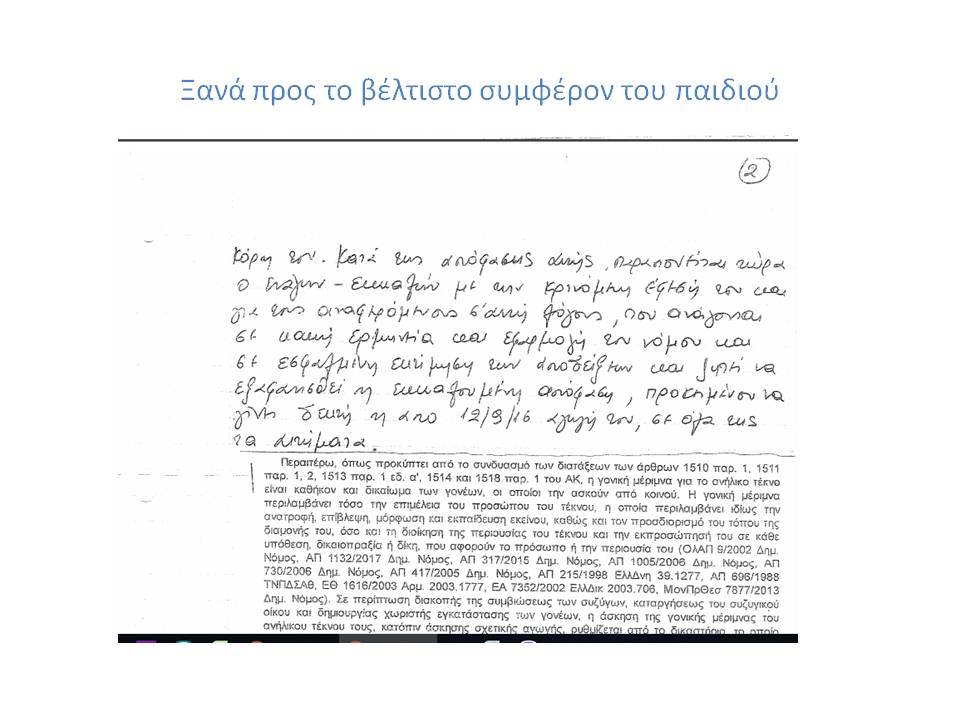 Ξανά προς το βέλτιστο συμφέρον του παιδιού
2
κόρη του. Κατά της απόφασης αυτής, παραπονείται τώρα
ο ενάγων - εκκαλών με την κρινόμενη έφεσή του και
για τους αναφερόμενους σ' αυτή λόγους, που ανάγονται
σε κακή ερμηνεία και εφαρμογή του νόμου και
σε εσφαλμένη εκτίμηση των αποδείξεων και ζητεί να
εξαφανισθεί η εκκαλουμένη απόφαση, προκειμένου να
γίνει δεκτή η από 12/9/16 αγωγή του, σε όλα της
τα αιτήματα.
Περαιτέρω, όπως προκύπτει από το συνδυασμό των διατάξεων των άρθρων 1510 παρ. 1, 1511
παρ. 1, 2, 1513 παρ. 1 εδ. α', 1514 και 1518 παρ. 1 του ΑΚ, η γονική μέριμνα για το ανήλικο τέκνο
είναι καθήκον και δικαίωμα των γονέων, οι οποίοι την ασκούν από κοινού. Η γονική μέριμνα
περιλαμβάνει τόσο την επιμέλεια του προσώπου του τέκνου, η οποία περιλαμβάνει ιδίως την
ανατροφή, επίβλεψη, μόρφωση και εκπαίδευση εκείνου, καθώς και τον προσδιορισμό του τόπου της
διαμονής του, όσο και τη διοίκηση της περιουσίας του τέκνου και την εκπροσώπησή του σε κάθε
υπόθεση, δικαιοπραξία ή δίκη, που αφορούν το πρόσωπο ή την περιουσία του (ΟλΑΠ 9/2002 Δημ.
Νόμος, ΑΠ 1132/2017 Δημ. Νόμος, ΑΠ 317/2015 Δημ. Νόμος, ΑΠ 1005/2006 Δημ. Νόμος, ΑΠ
730/2006 Δημ. Νόμος, ΑΠ 417/2005 Δημ. Νόμος, ΑΠ 215/1998 ΕλλΔνη 39.1277, ΑΠ 696/1988
ΤΝΠΔΣΑθ, ΕΘ 1616/2003 Αρμ. 2003.1777, ΕΑ 7352/2002 ΕλλΔικ 2003.706, ΜονΠρΘεσ 7877/2013
Δημ. Νόμος). Σε περίπτωση διακοπής της συμβιώσεως των συζύγων, καταργήσεως του συζυγικού
οίκου και δημιουργίας χωριστής εγκατάστασης των γονέων, η άσκηση της γονικής μέριμνας του
ανήλικου τέκνου τους, κατόπιν άσκησης σχετικής αγωγής, ρυθμίζεται από το δικαστήριο, το οποίο